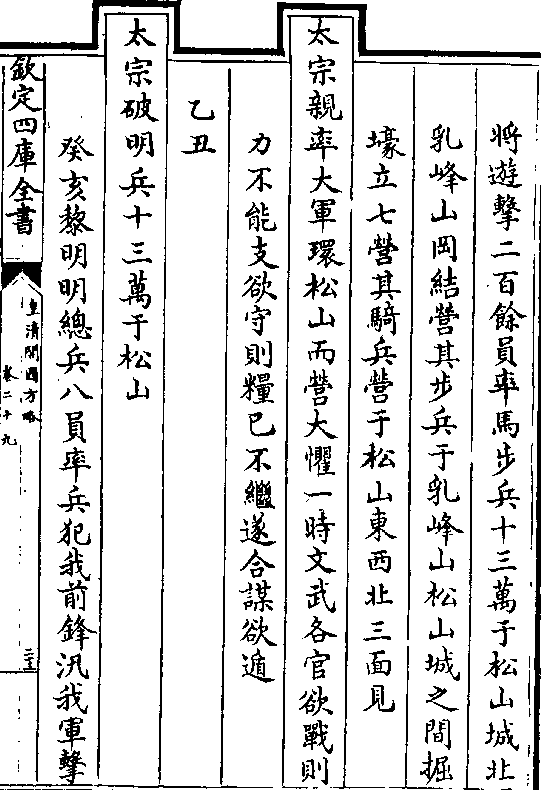 將遊擊二百餘員率馬步兵十三萬于松山城北
乳峰山岡結營其步兵于乳峰山松山城之間掘
壕立七營其騎兵營于松山東西北三面見
太宗親率大軍環松山而營大懼一時文武各官欲戰則
力不能支欲守則糧已不繼遂合謀欲遁
乙丑
太宗破明兵十三萬于松山
癸亥黎明明總兵八員率兵犯我前鋒汛我軍擊
欽定四庫全書
皇清開國方略
卷二十九